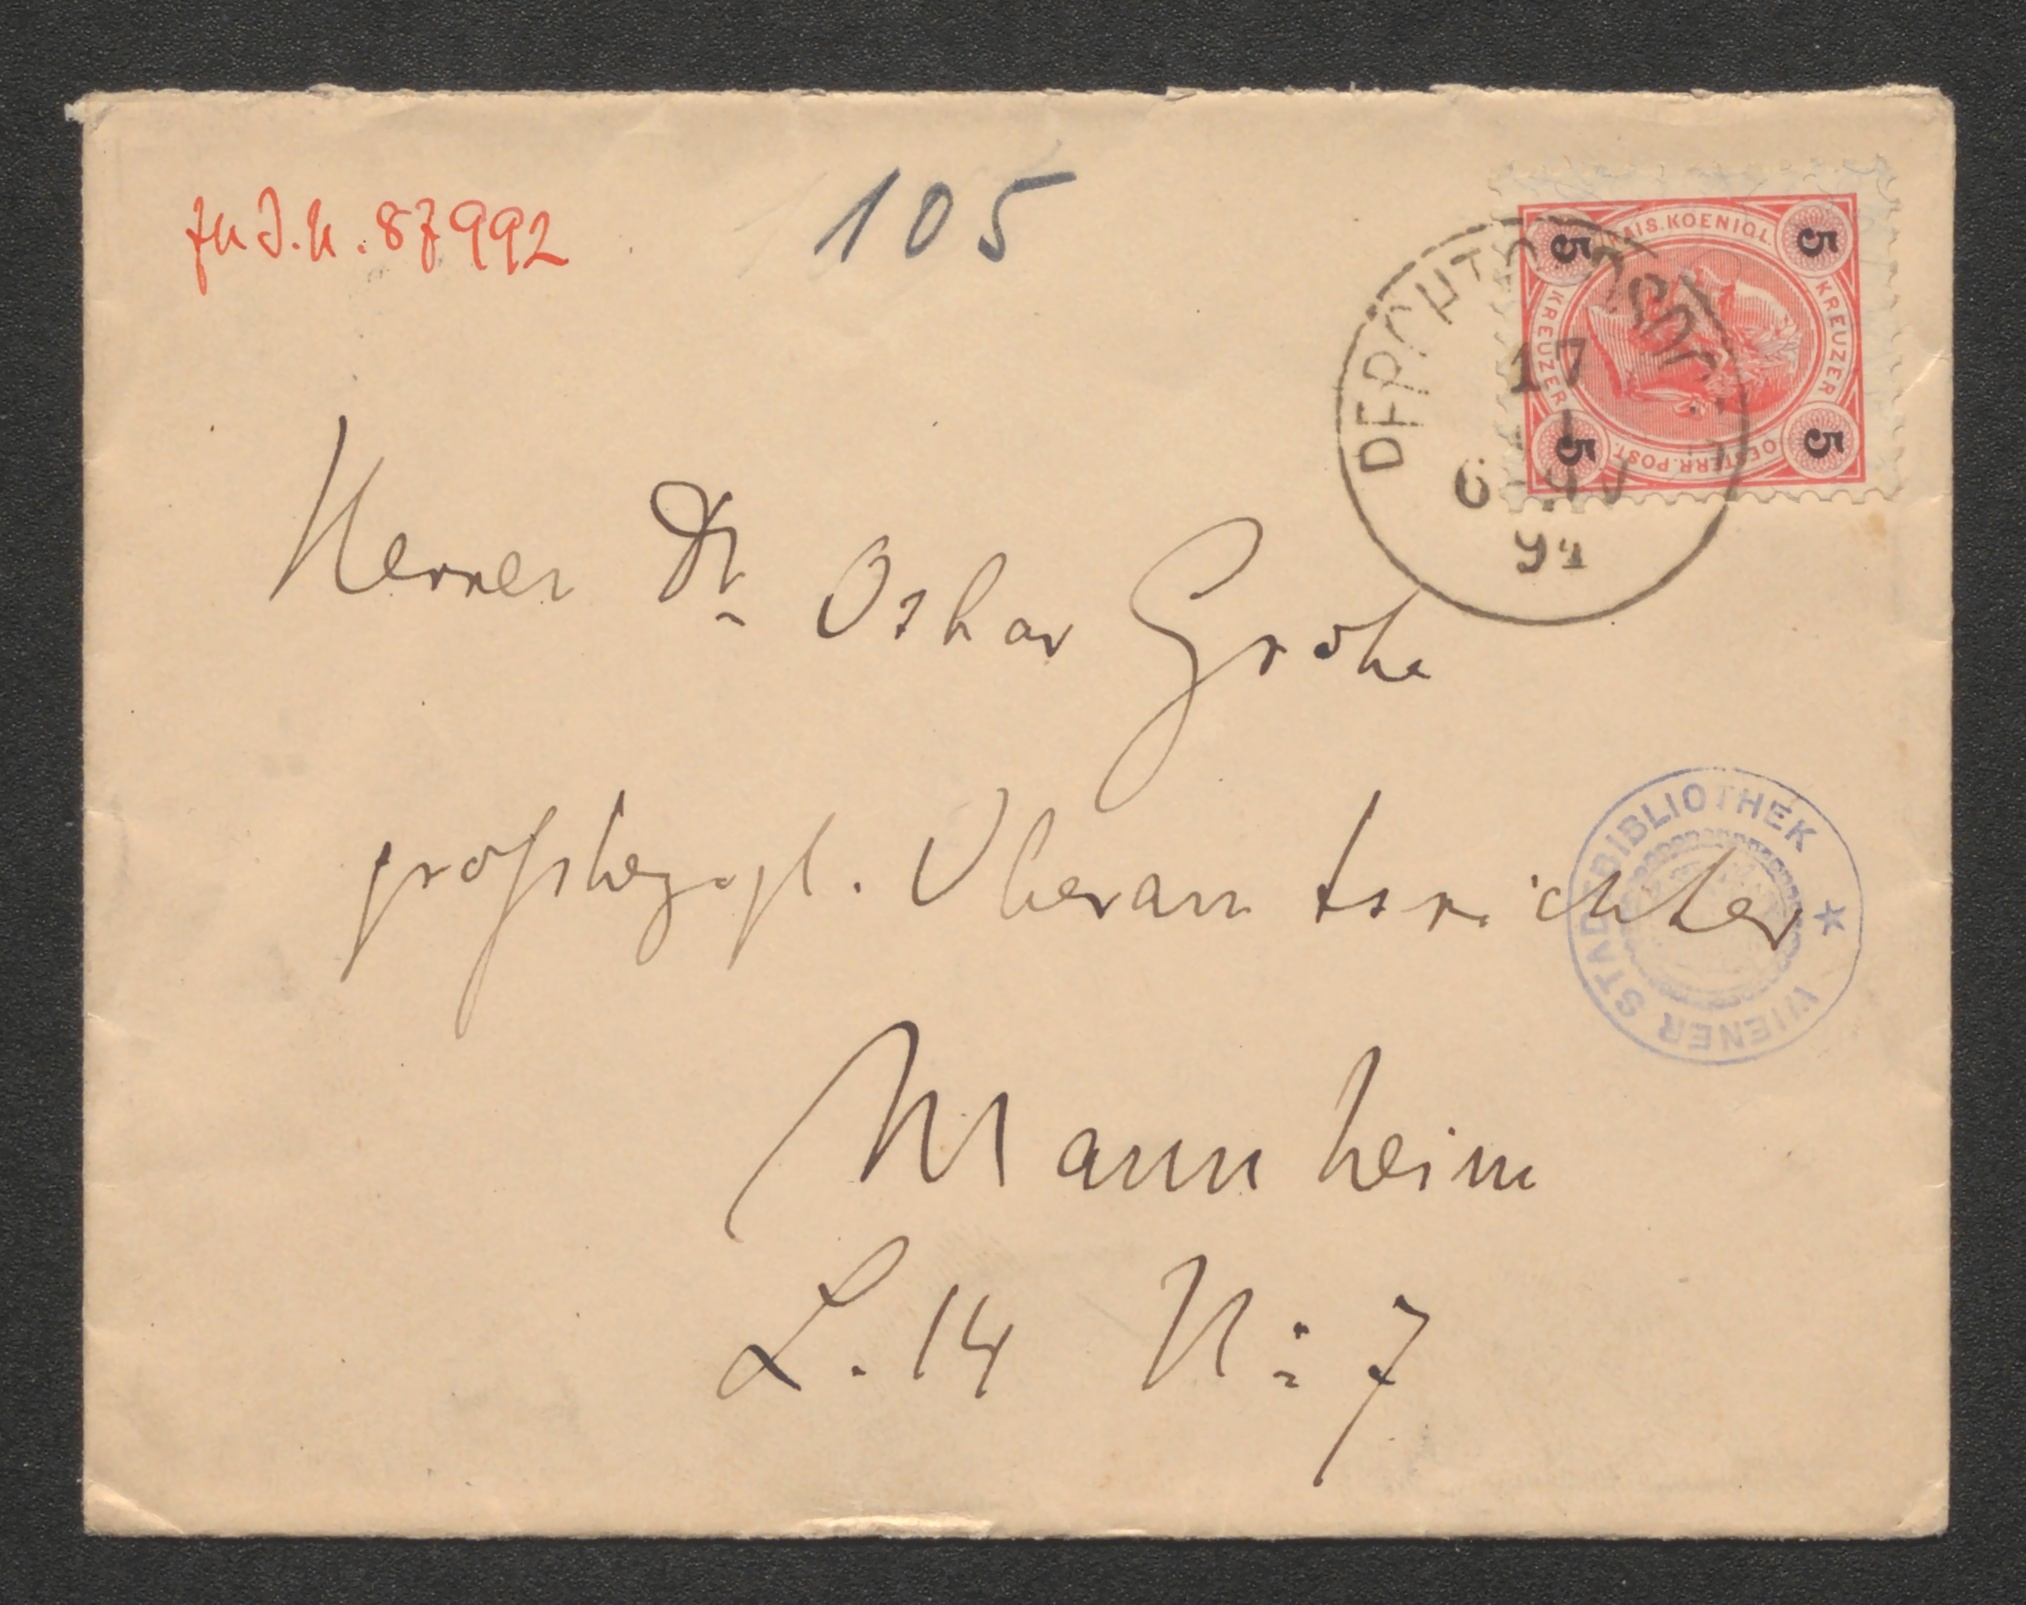 zu J.N. 87992
105
KAIS. KOENIGL.
KREUZER
KREUZER
OESTERR. POST.
5
5
5
5
17
1
94
Herrn Dr. Oskar Grohe
grossherzogl. Oberamtsrichter
WIENER STADTBIBLIOTHEK
Mannheim
L. 14 No: 7